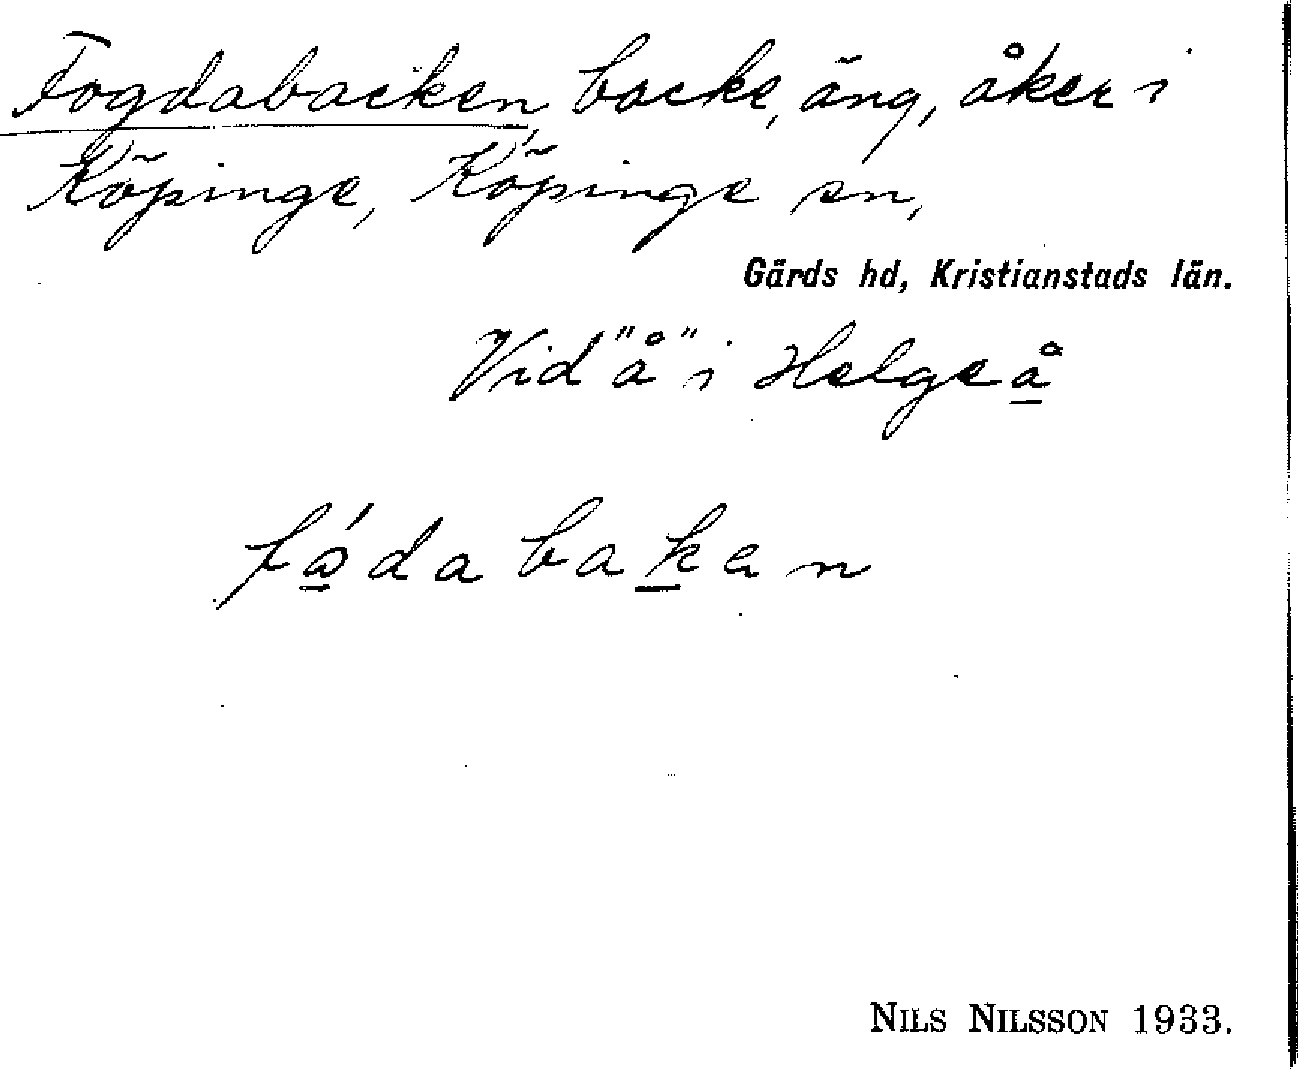 Fogdabacken, backe, äng, åker i
Köpinge, Köpinge sn,
Gärds hd, Kristianstads län.
Vid "å" i Helgeå
fádabakan
NILS NILSSON 1933.